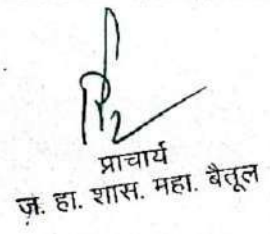 प्राचार्य
ज़. हा. शास. महा. बैतूल